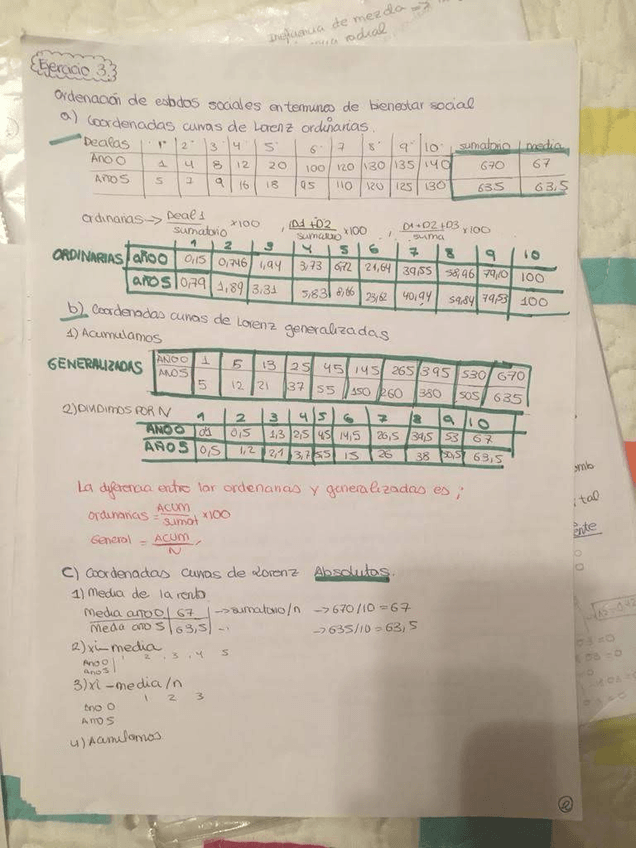 influencia de mezcla →
radial
Ejercicio 3.
Ordenación de estados sociales en terminos de bienestar social
a) Coordenadas curvas de Lorenz ordinarias.
Decilas 1· 2· 3· 4 5· 6· 7 8· 9· 10· sumatorio media
AÑO 0 1 4 8 12 20 100 120 130 135 140 670 67
AÑO 5 5 7 9 16 18 95 110 120 125 130 635 63,5
ordinarias → Decil 1 / sumatorio x100 , D1+D2 / sumatorio x100 , D1+D2+D3 / suma x100
1 2 3 4 5 6 7 8 9 10
ORDINARIAS año 0 0,15 0,746 1,94 3,73 6,72 21,64 39,55 58,96 79,10 100
año 5 0,79 1,89 3,31 5,83 8,66 23,62 40,94 59,84 79,53 100
b) Coordenadas curvas de Lorenz generalizadas
1) Acumulamos
GENERALIZADAS AÑO 0 1 5 13 25 45 145 265 395 530 670
AÑO 5 5 12 21 37 55 150 260 380 505 635
2) DIVIDIMOS POR N 1 2 3 4 5 6 7 8 9 10
AÑO 0 0,1 0,5 1,3 2,5 4,5 14,5 26,5 39,5 53 67
AÑO 5 0,5 1,2 2,1 3,7 5,5 15 26 38 50,5 63,5
La diferencia entre las ordenarias y generalizadas es;
ordinarias = ACUM / sumat x100
General = ACUM / N
C) Coordenadas curvas de Lorenz Absolutas.
1) Media de la renta
Media año 0 67 → sumatorio/n → 670/10 = 67
Media año 5 63,5 → 635/10 = 63,5
2) xi - media
Año 0 1 2 3 4 5
año 5
3) xi - media/n
1 2 3
año 0
AÑO 5
4) Acumulamos
2